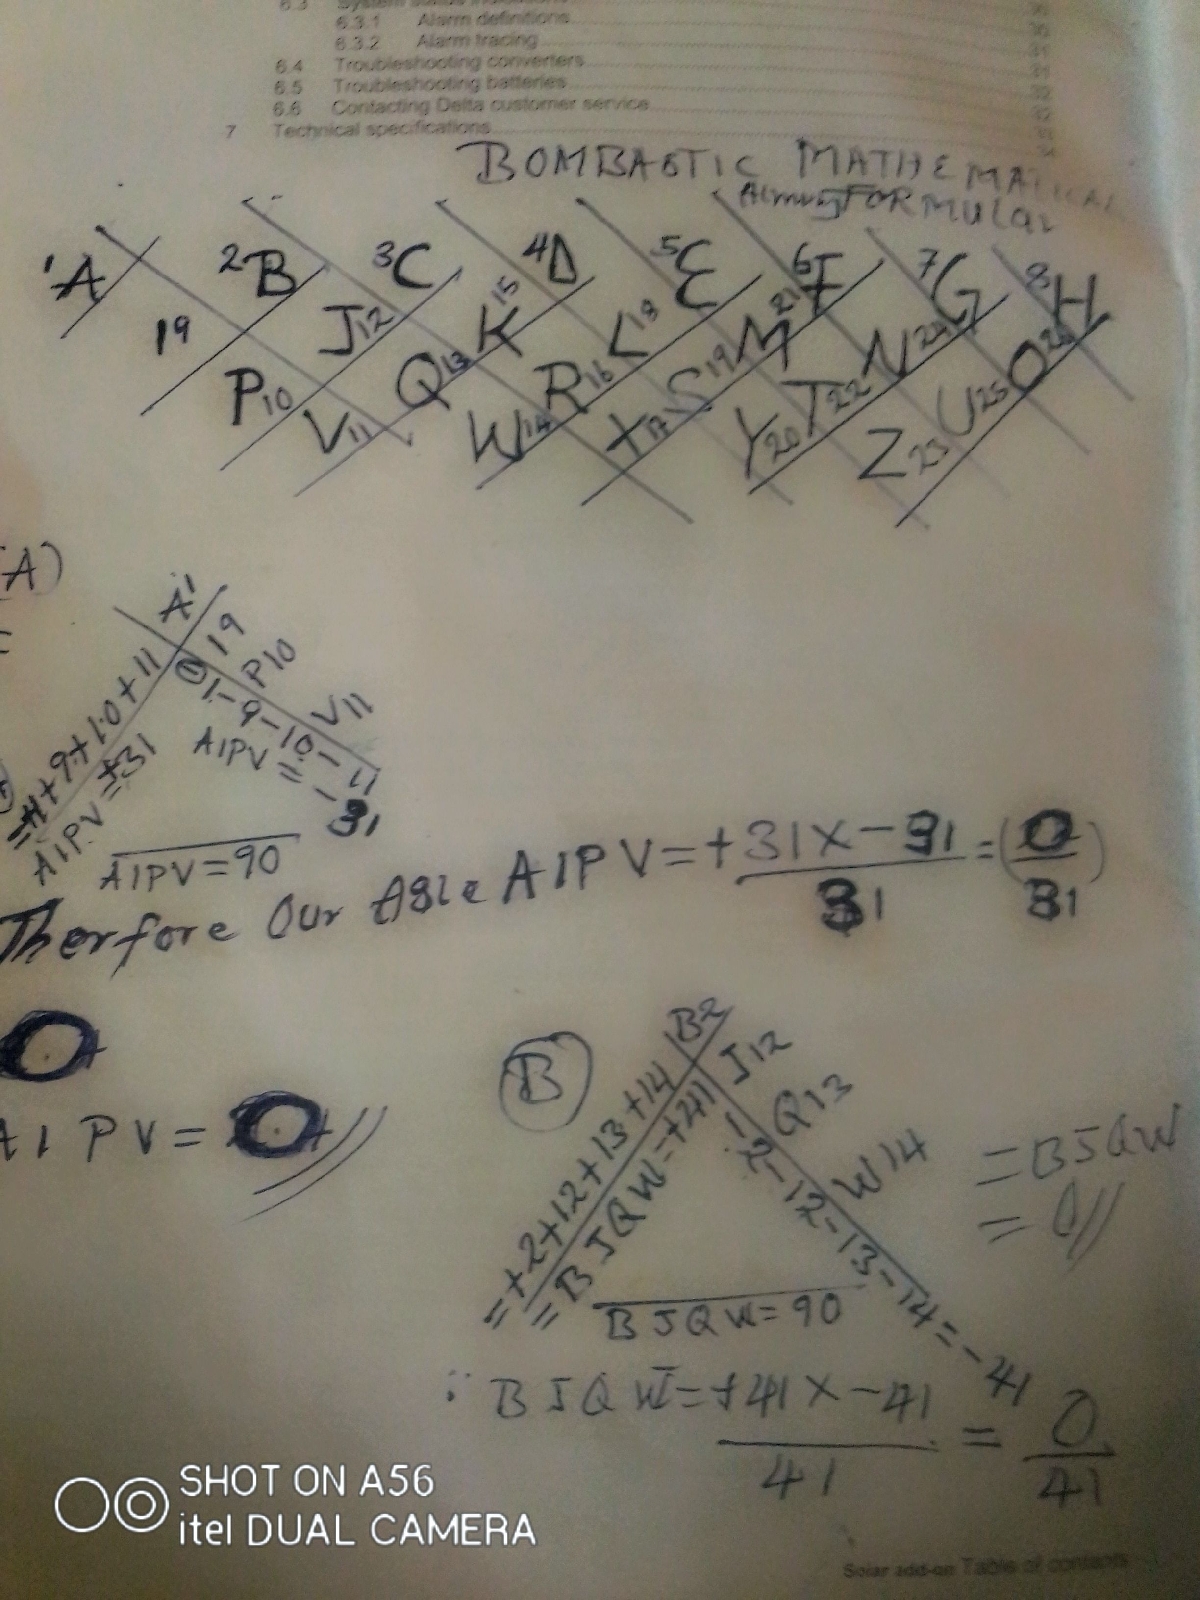 6.3.1 Alarm definitions
6.3.2 Alarm tracing 31
6.4 Troubleshooting converters 31
6.5 Troubleshooting batteries 32
6.6 Contacting Delta customer service 32
7 Technical specifications
BOMBASTIC MATHEMATICAL
FORMULAR
1A 2B 3C 4D 5E 6F 7G 8H
19 J12 K15 L18 M21 N24 O26
P10 Q13 R16 S19 T22 U25
V11 W14 X17 Y20 Z23
(A)
A1
19
P10
V11
1-9-10-11
AIPV = -31
+1+9+10+11
AIPV = +31
AIPV=90
Therfore Our Able AIPV=+31X-31 = (0
31 31)
0
AIPV=0
B
B2
J12
Q13
W14
=+2+12+13+14
=BJQW=+41
-2-12-13-14=-41
=BJQW
=0
BJQW=90
∴ BJQW=+41X-41 = 0
41 41
SHOT ON A56
itel DUAL CAMERA
Solar add-on Table of contents